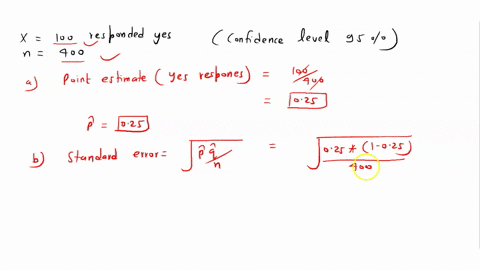 X = 100 responded yes (Confidence level 95 %)
n = 400
a) Point estimate (yes respones) = 100/400
= 0.25
p̂ = 0.25
b) Standard error = √(p̂ q̂/n) = √(0.25 * (1-0.25)/400)